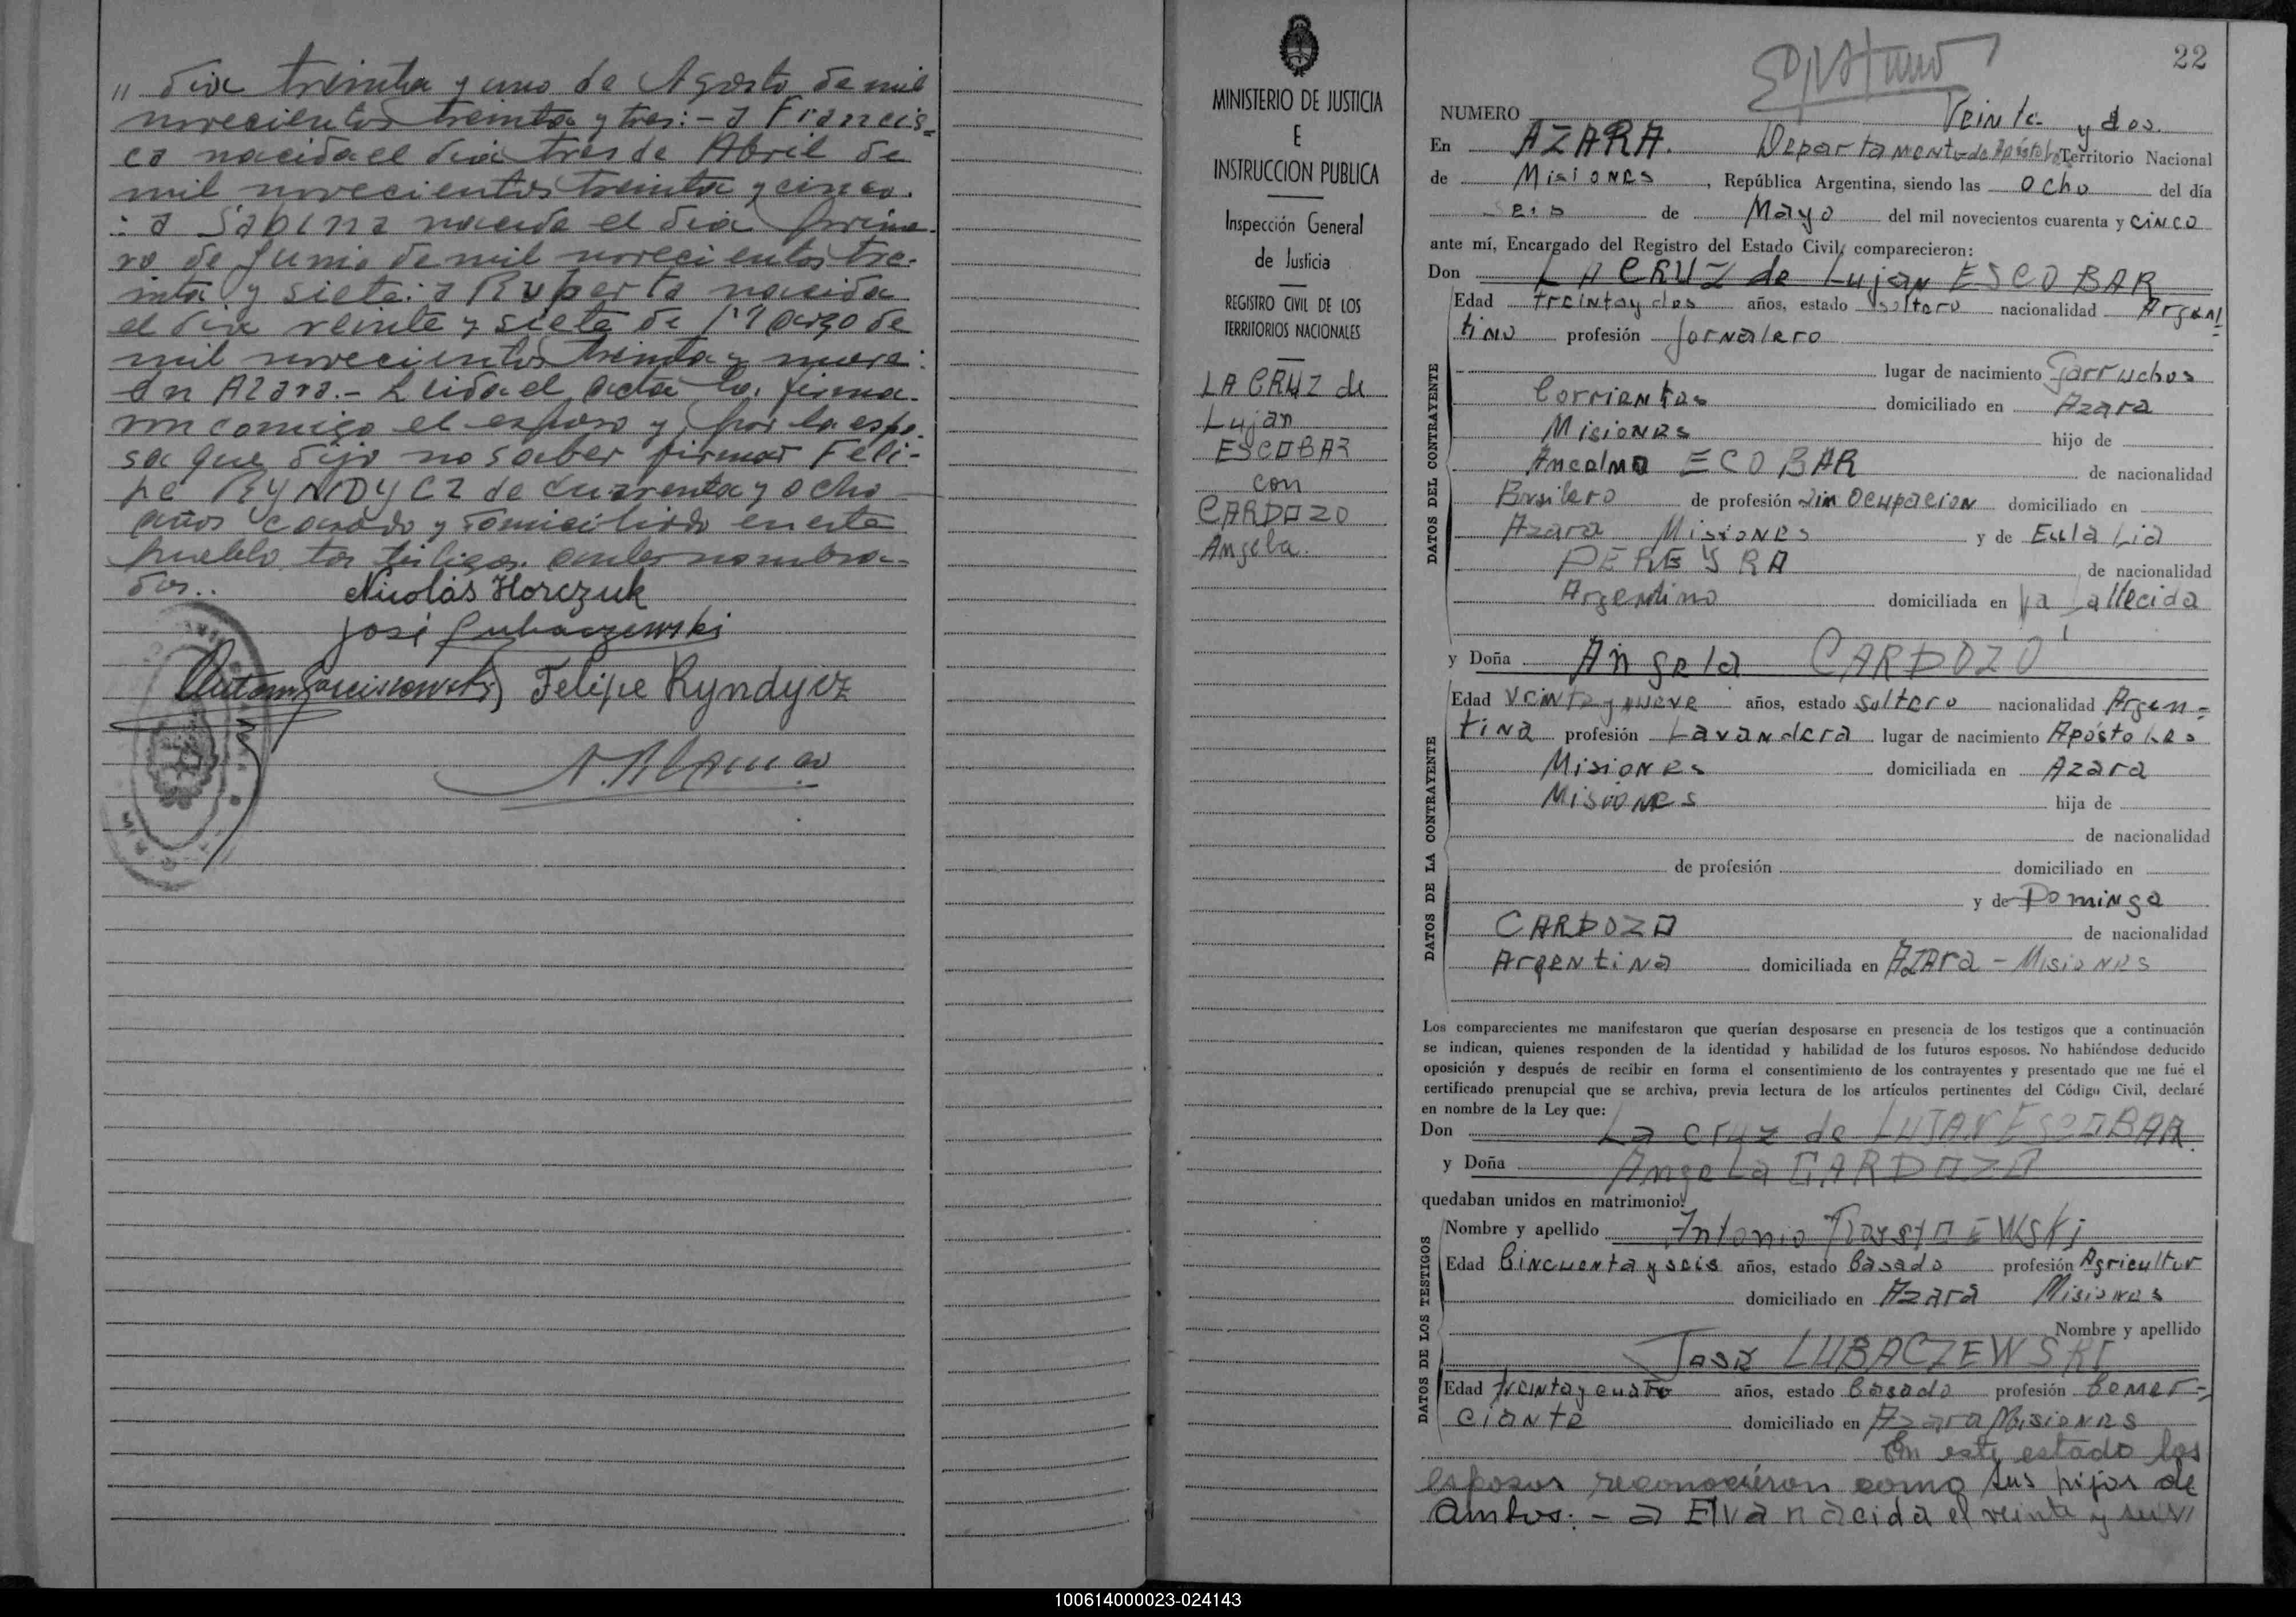 " dia treinta y uno de Agosto de mil
novecientos treinta y tres:- a Francis-
ca nacida el dia tres de Abril de
mil novecientos treinta y cinco.
: a Sabina nacida el dia prime-
ro de Junio de mil novecientos tre-
inta y siete: a Ruperta nacida
el dia veinte y siete de Marzo de
mil novecientos treinta y nueve:
en Azara.- Leida el acta la firma-
ron comigo el esposo y por la espo-
sa que dijo no saber firmar Feli-
pe RYNDYCZ de cuarenta y ocho
años casado y domiciliado en este
pueblo los testigos antes nombra-
dos..
Nicolás Horczuk
José Lubaczewski
Felipe Ryndycz
MINISTERIO DE JUSTICIA
E
INSTRUCCION PUBLICA
Inspección General
de Justicia
REGISTRO CIVIL DE LOS
TERRITORIOS NACIONALES
LA CRUZ de
Lujan
ESCOBAR
con
CARDOZO
Angela.
22
NUMERO Veinte y dos.
En AZARA. Departamento de Apóstoles Territorio Nacional
de Misiones, República Argentina, siendo las Ocho del día
seis de Mayo del mil novecientos cuarenta y cinco
ante mí, Encargado del Registro del Estado Civil, comparecieron:
Don LA CRUZ de Lujan ESCOBAR
DATOS DEL CONTRAYENTE
Edad treinta y dos años, estado soltero nacionalidad Argen-
tino profesión Jornalero
lugar de nacimiento Garruchos
Corrientes domiciliado en Azara
Misiones hijo de
Ancelmo ECOBAR de nacionalidad
Brasilero de profesión sin Ocupacion domiciliado en
Azara Misiones y de Eulalia
PEREYRA de nacionalidad
Argentina domiciliada en ya fallecida
y Doña Angela CARDOZO
DATOS DE LA CONTRAYENTE
Edad veinte y nueve años, estado soltero nacionalidad Argen-
tina profesión Lavandera lugar de nacimiento Apóstoles
Misiones domiciliada en Azara
Misiones hija de
de nacionalidad
de profesión domiciliado en
y de Dominga
CARDOZO de nacionalidad
Argentina domiciliada en AZAra - Misiones
Los comparecientes me manifestaron que querían desposarse en presencia de los testigos que a continuación
se indican, quienes responden de la identidad y habilidad de los futuros esposos. No habiéndose deducido
oposición y después de recibir en forma el consentimiento de los contrayentes y presentado que me fué el
certificado prenupcial que se archiva, previa lectura de los artículos pertinentes del Código Civil, declaré
en nombre de la Ley que:
Don La cruz de LUJAN ESCOBAR.
y Doña Angela CARDOZO
quedaban unidos en matrimonio:
DATOS DE LOS TESTIGOS
Nombre y apellido Antonio
Edad Cincuenta y seis años, estado Casado profesión Agricultor
domiciliado en Azara Misiones
Nombre y apellido
José LUBACZEWSKI
Edad treinta y cuatro años, estado Casado profesión Comer-
ciante domiciliado en Azara Misiones
En este estado los
esposos reconocieron como sus hijos de
ambos:- a Elva nacida el veinte y
100614000023-024143